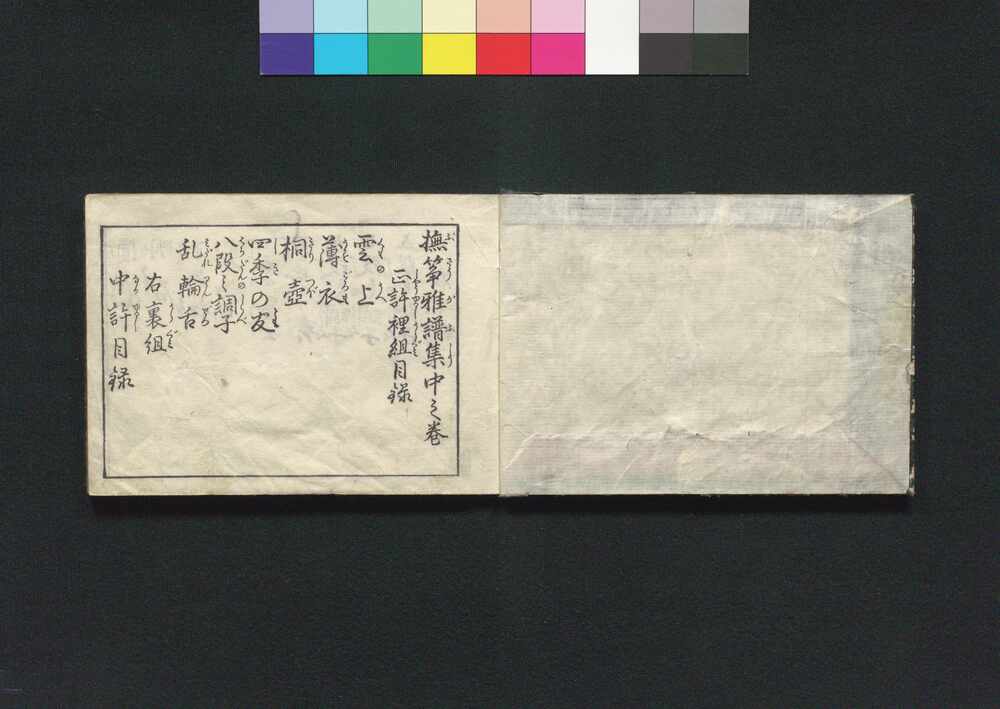 撫箏雅譜集中之巻
正許裡組目録
雲の上
薄衣
桐壺
四季の友
八段之調子
乱輪舌
右裏組
中許目録